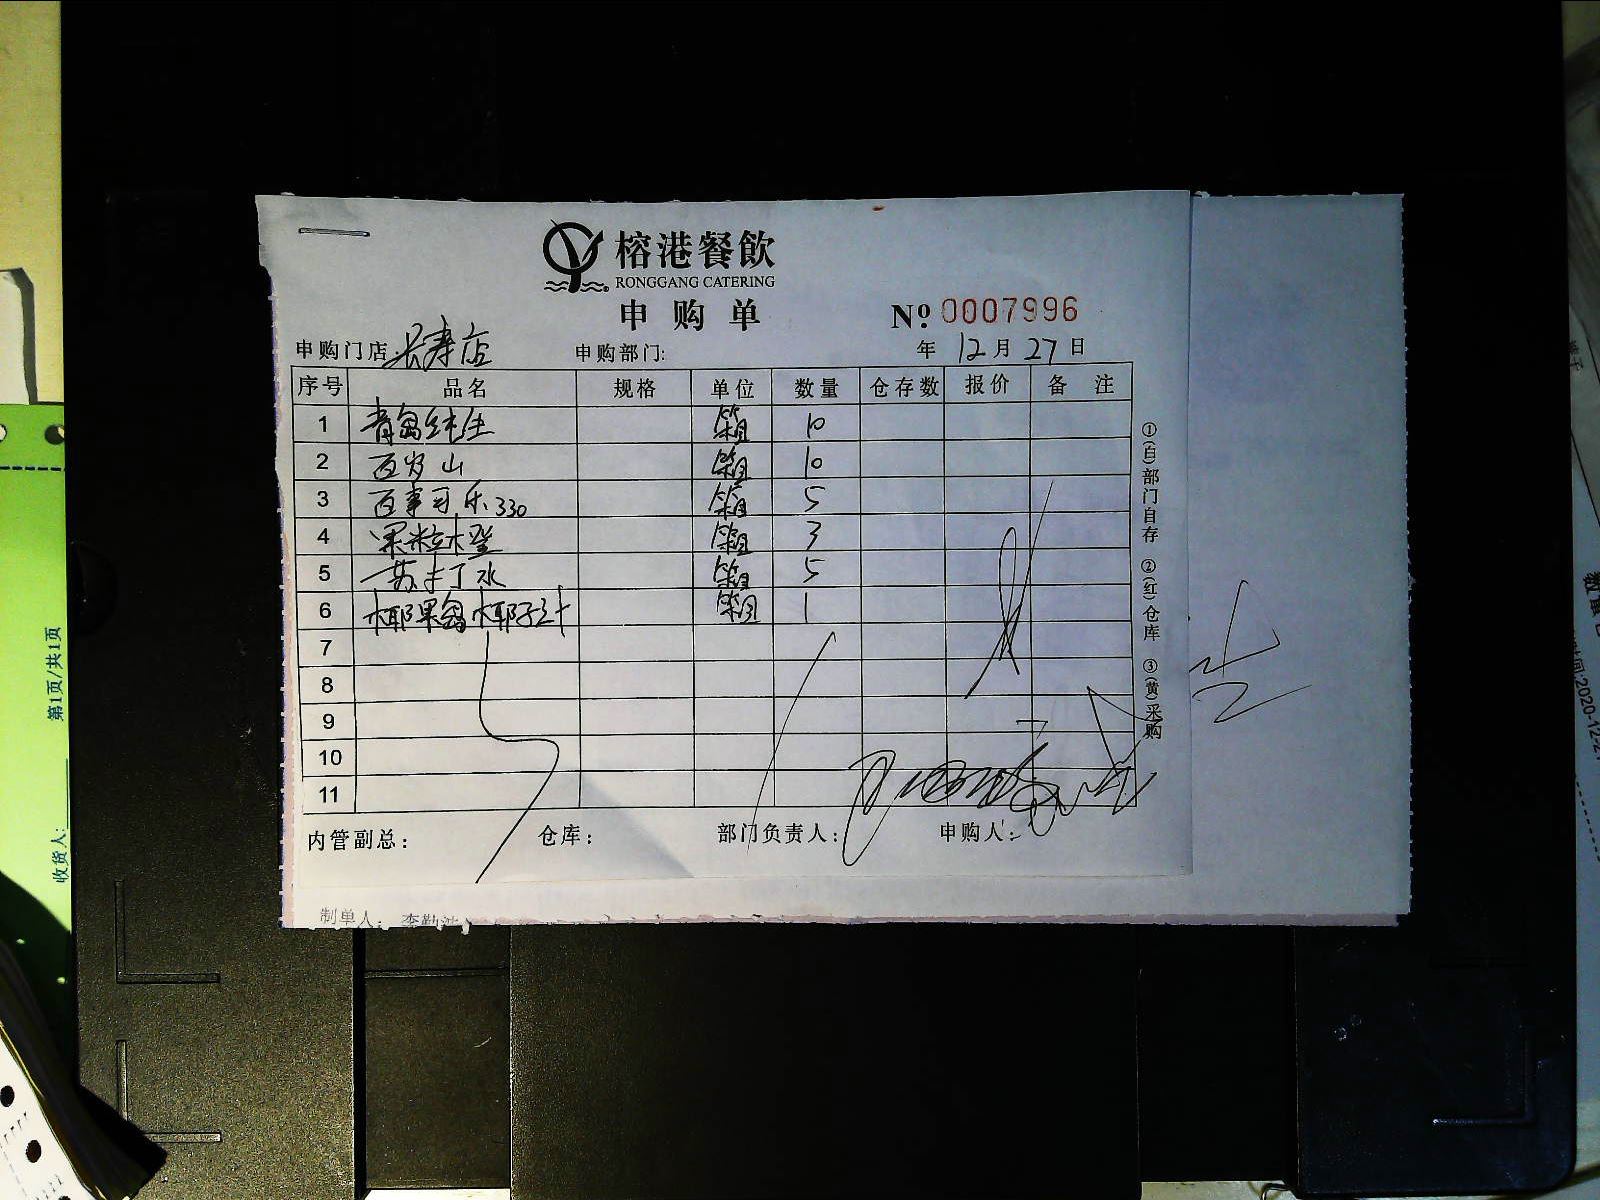 榕港餐飲
RONGGANG CATERING
申购单
№ 0007996
申购门店 长寿店 申购部门: 年 12 月 27 日
序号 品名 规格 单位 数量 仓存数 报价 备注
1 青岛纯生 箱 10
2 百岁山 箱 10
3 百事可乐330 箱 5
4 果粒橙 箱 3
5 苏打水 箱 5
6 椰果岛椰子汁 箱 1
7
8
9
10
11
内管副总: 仓库: 部门负责人: 申购人:
①(白)部门自存 ②(红)仓库 ③(黄)采购
制单人: 李勤波
第1页/共1页
收货人:
时间:2020-12-2